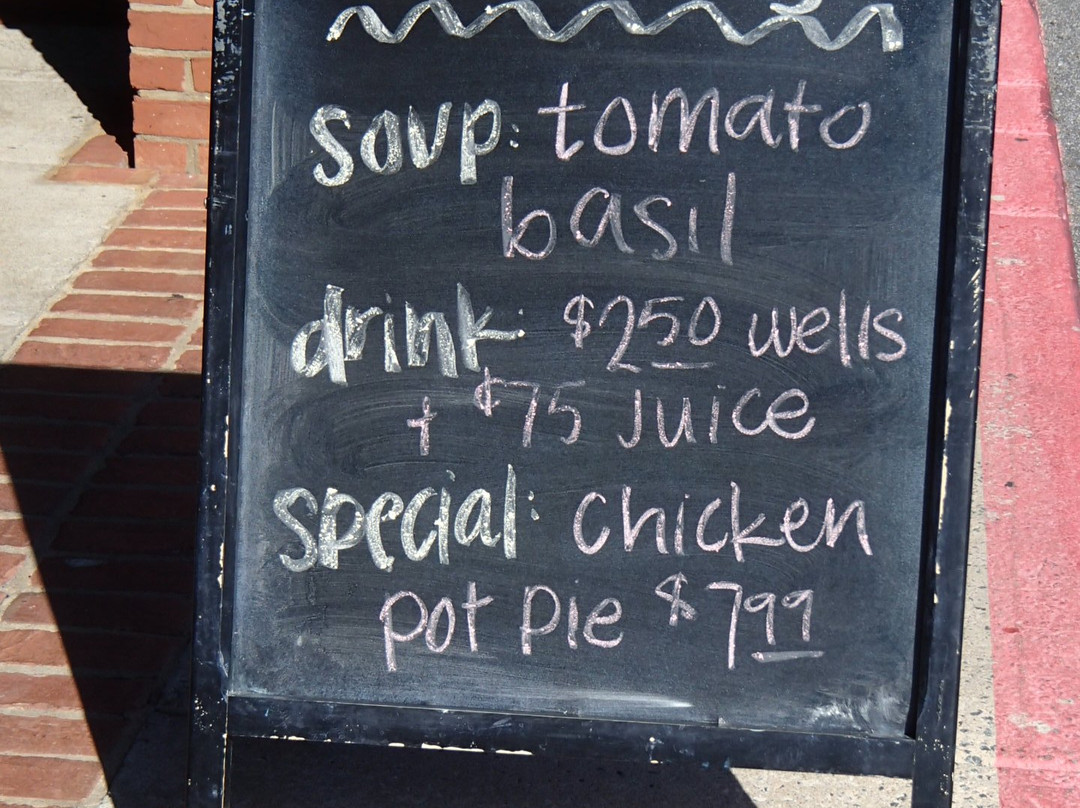 soup: tomato
basil
drink: $250 wells
+ $75 Juice
special: chicken
pot pie $799